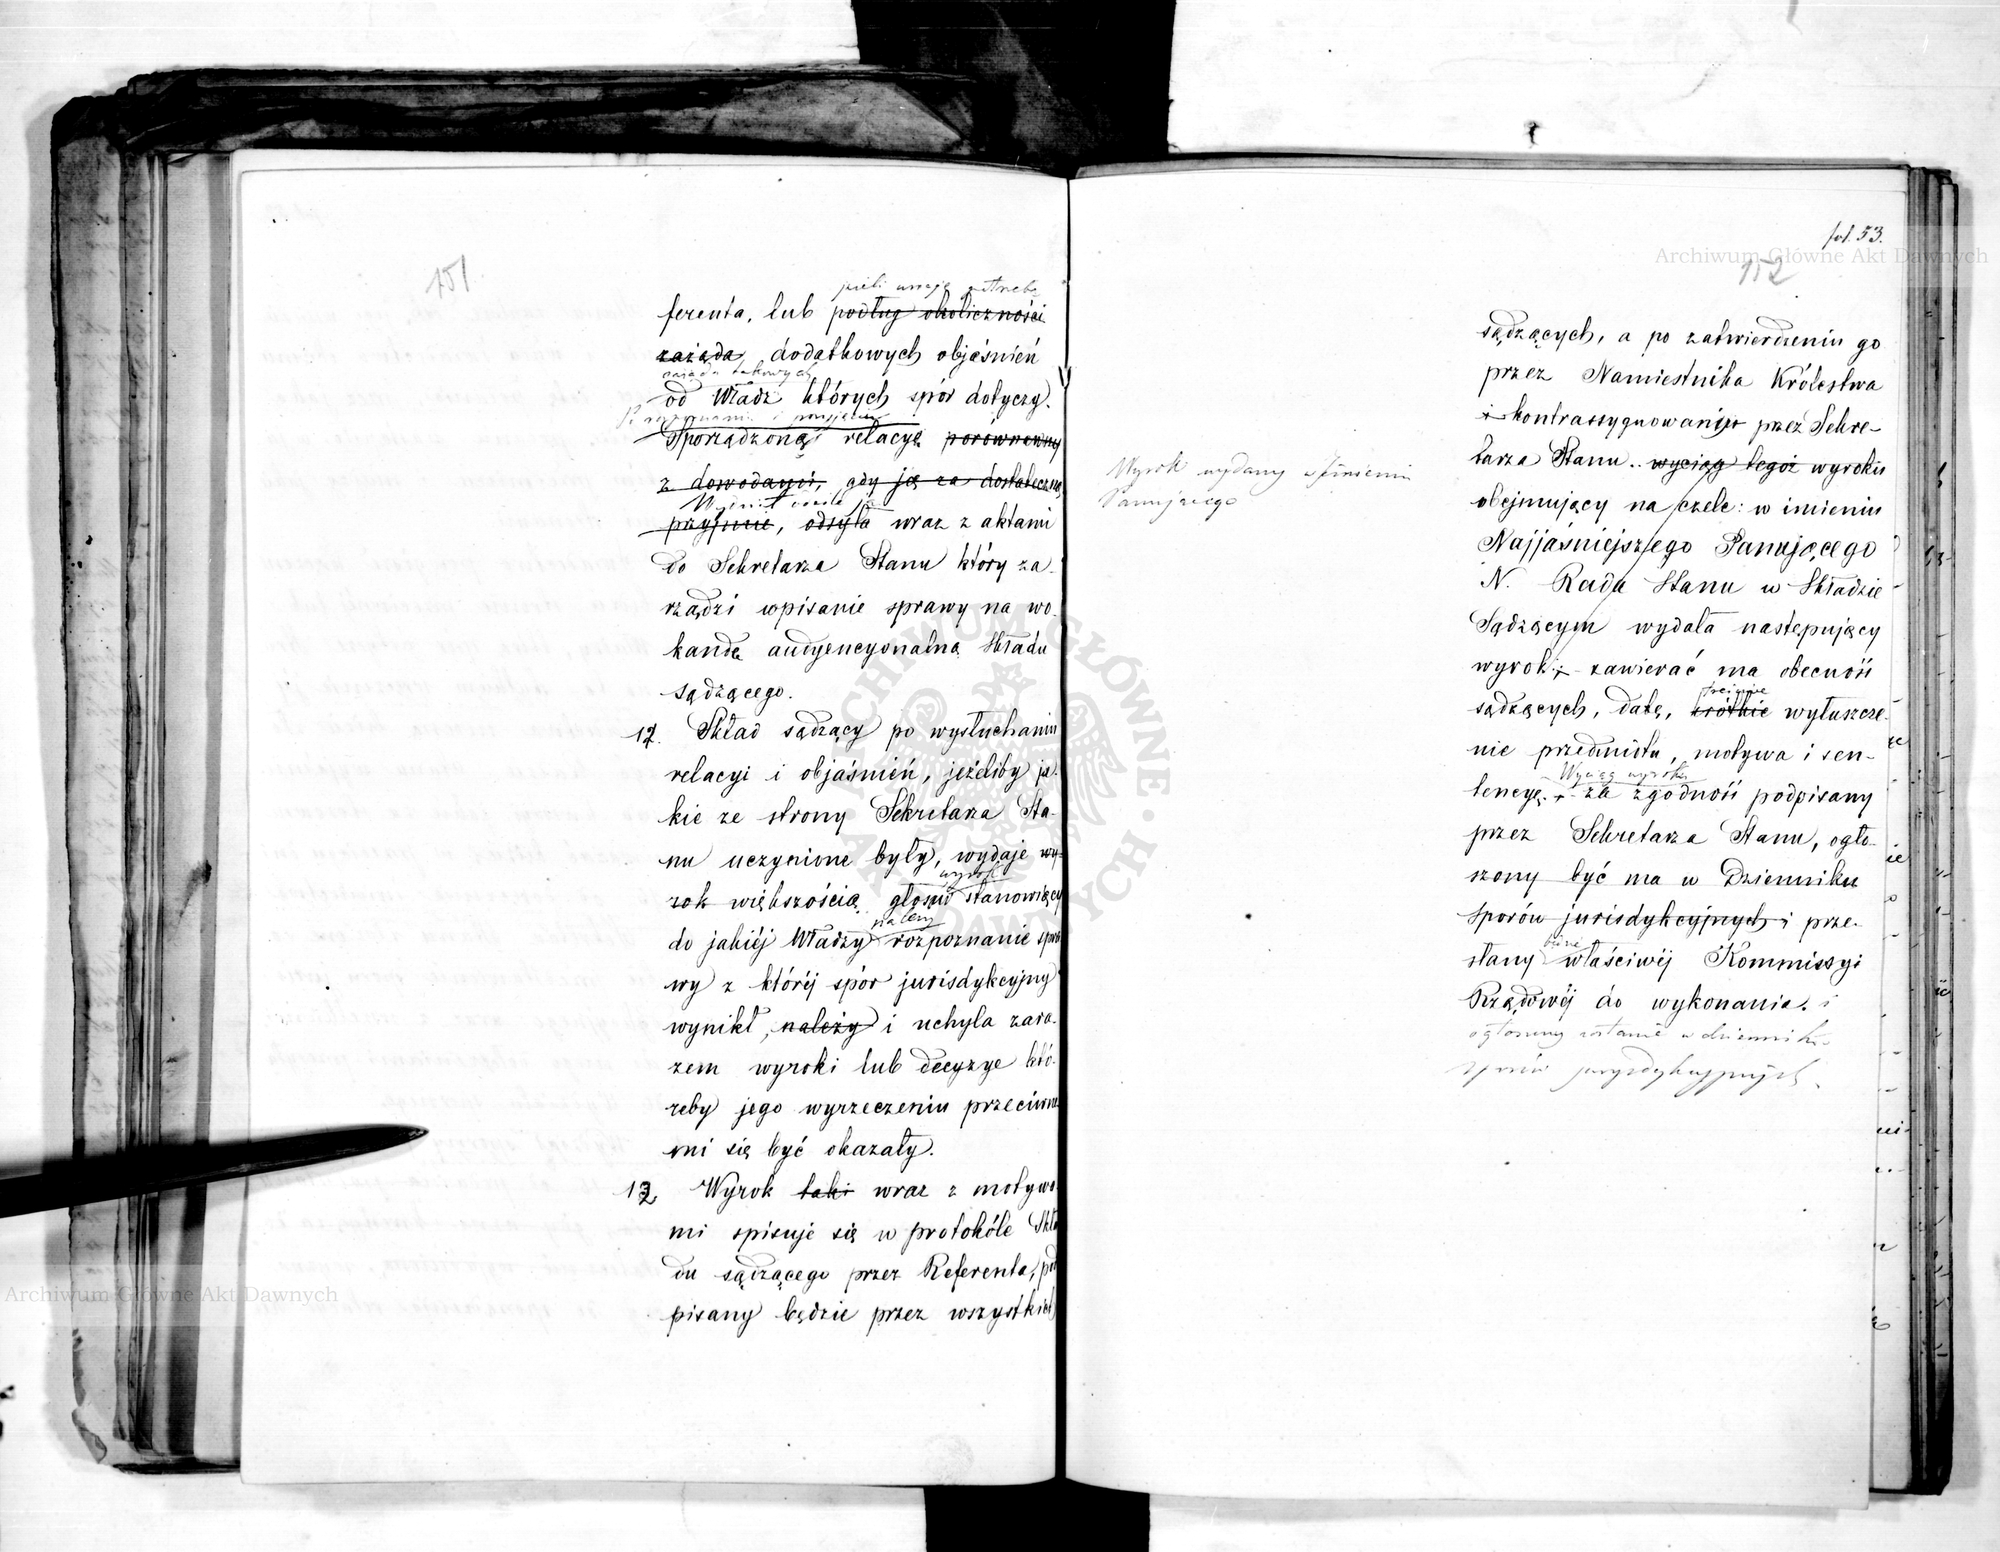 151.
jeżeli uzna potrzebę
ferenta, lub podług okoliczności
zażąda, dodatkowych objaśnień
zażąda takowych
od Władz których spór dotyczy.
Po rozpoznaniu i przyjęciu
Sporządzoną relacyę porównawszy
z dowodami, gdy ją za dostateczną
przyjmie, odsyła wraz z aktami
do Sekretarza Stanu który za-
rządzi wpisanie sprawy na wo-
kandę audyencyonalną Składu
sądzącego.
12. Skład sądzący po wysłuchaniu
relacyi i objaśnień, jeżeliby ja-
kie ze strony Sekretarza Sta-
nu uczynione były, wydaje wy-
wyrok
rok większością głosów stanowiący
należy
do jakiéj Władzy rozpoznanie spra
wy z któréj spór jurisdykcyjny
wynikł, należy i uchyla zara-
zem wyroki lub decyzye któ-
reby jego wyrzeczeniu przeciwne
mi się być okazały.
13. Wyrok taki wraz z motywa
mi spisuje się w protokóle Skła
du sądzącego przez Referenta, pod
pisany będzie przez wszystkich
fol. 53.
152
sądzących, a po zatwierdzeniu go
przez Namiestnika Królestwa
i kontrassygnowaniu przez Sekre-
tarza Stanu.. wyciąg tegoż wyroku
obejmujący na czele: w imieniu
Najjaśniejszego Panującego
N. Rada Stanu w Składzie
Sądzącym wydała następujący
wyrok; zawierać ma obecność
treściwe
sądzących, datę, krótkie wyłuszcze-
nie przedmiotu, motywa i sen-
Wyciąg wyroku
tencyę. za zgodność podpisany
przez Sekretarza Stanu, ogło-
szony być ma w Dzienniku
sporów jurisdykcyjnych i prze-
będzie
słany właściwéj Kommissyi
Rządowéj do wykonania. i
ogłoszony zostanie w dzienniku
sporów jurysdykcyjnych.
Wyrok wydany w Imieniu
Panującego
Archiwum Główne Akt Dawnych
Archiwum Główne Akt Dawnych
ARCHIWUM GŁÓWNE AKT DAWNYCH